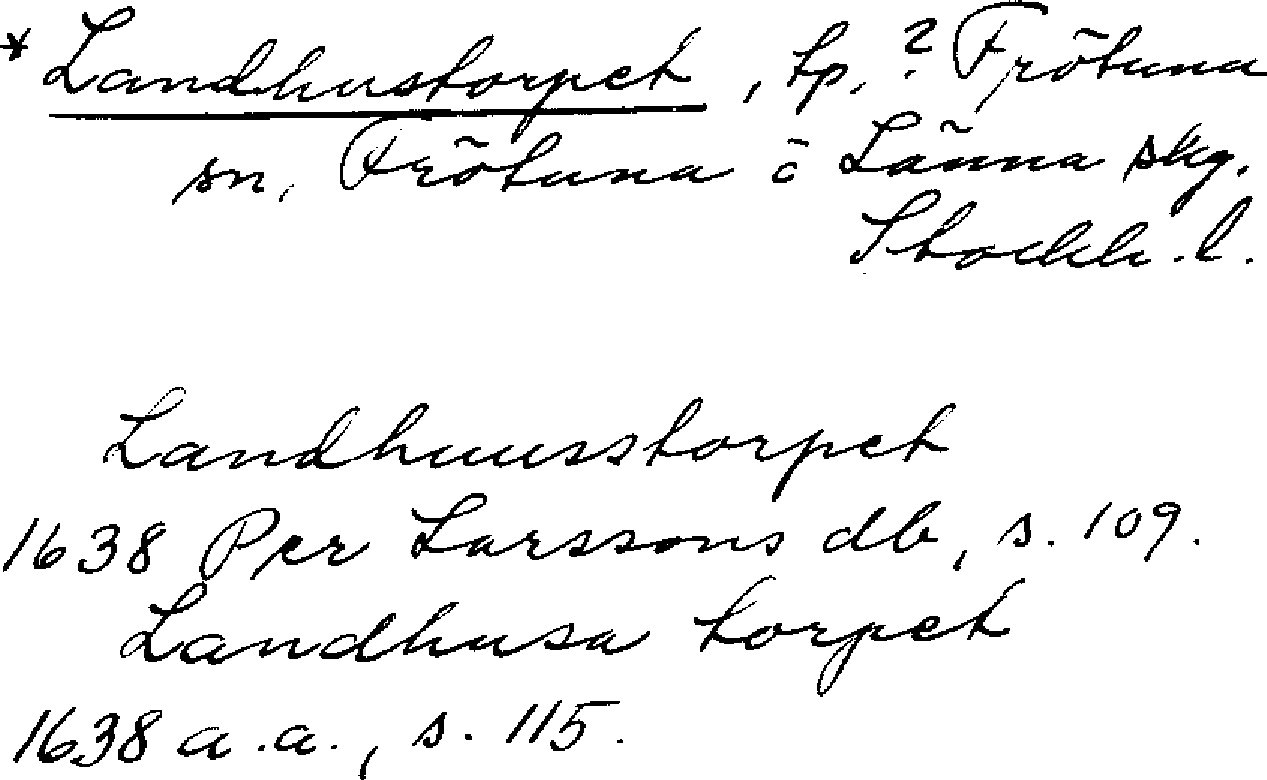 * Landhustorpet, tp, ? Frötuna
sn, Frötuna o Länna skg.
Stockh. l.
Landhuusstorpet
1638 Per Larssons db, s. 109.
Landhusa torpet
1638 a.a., s. 115.